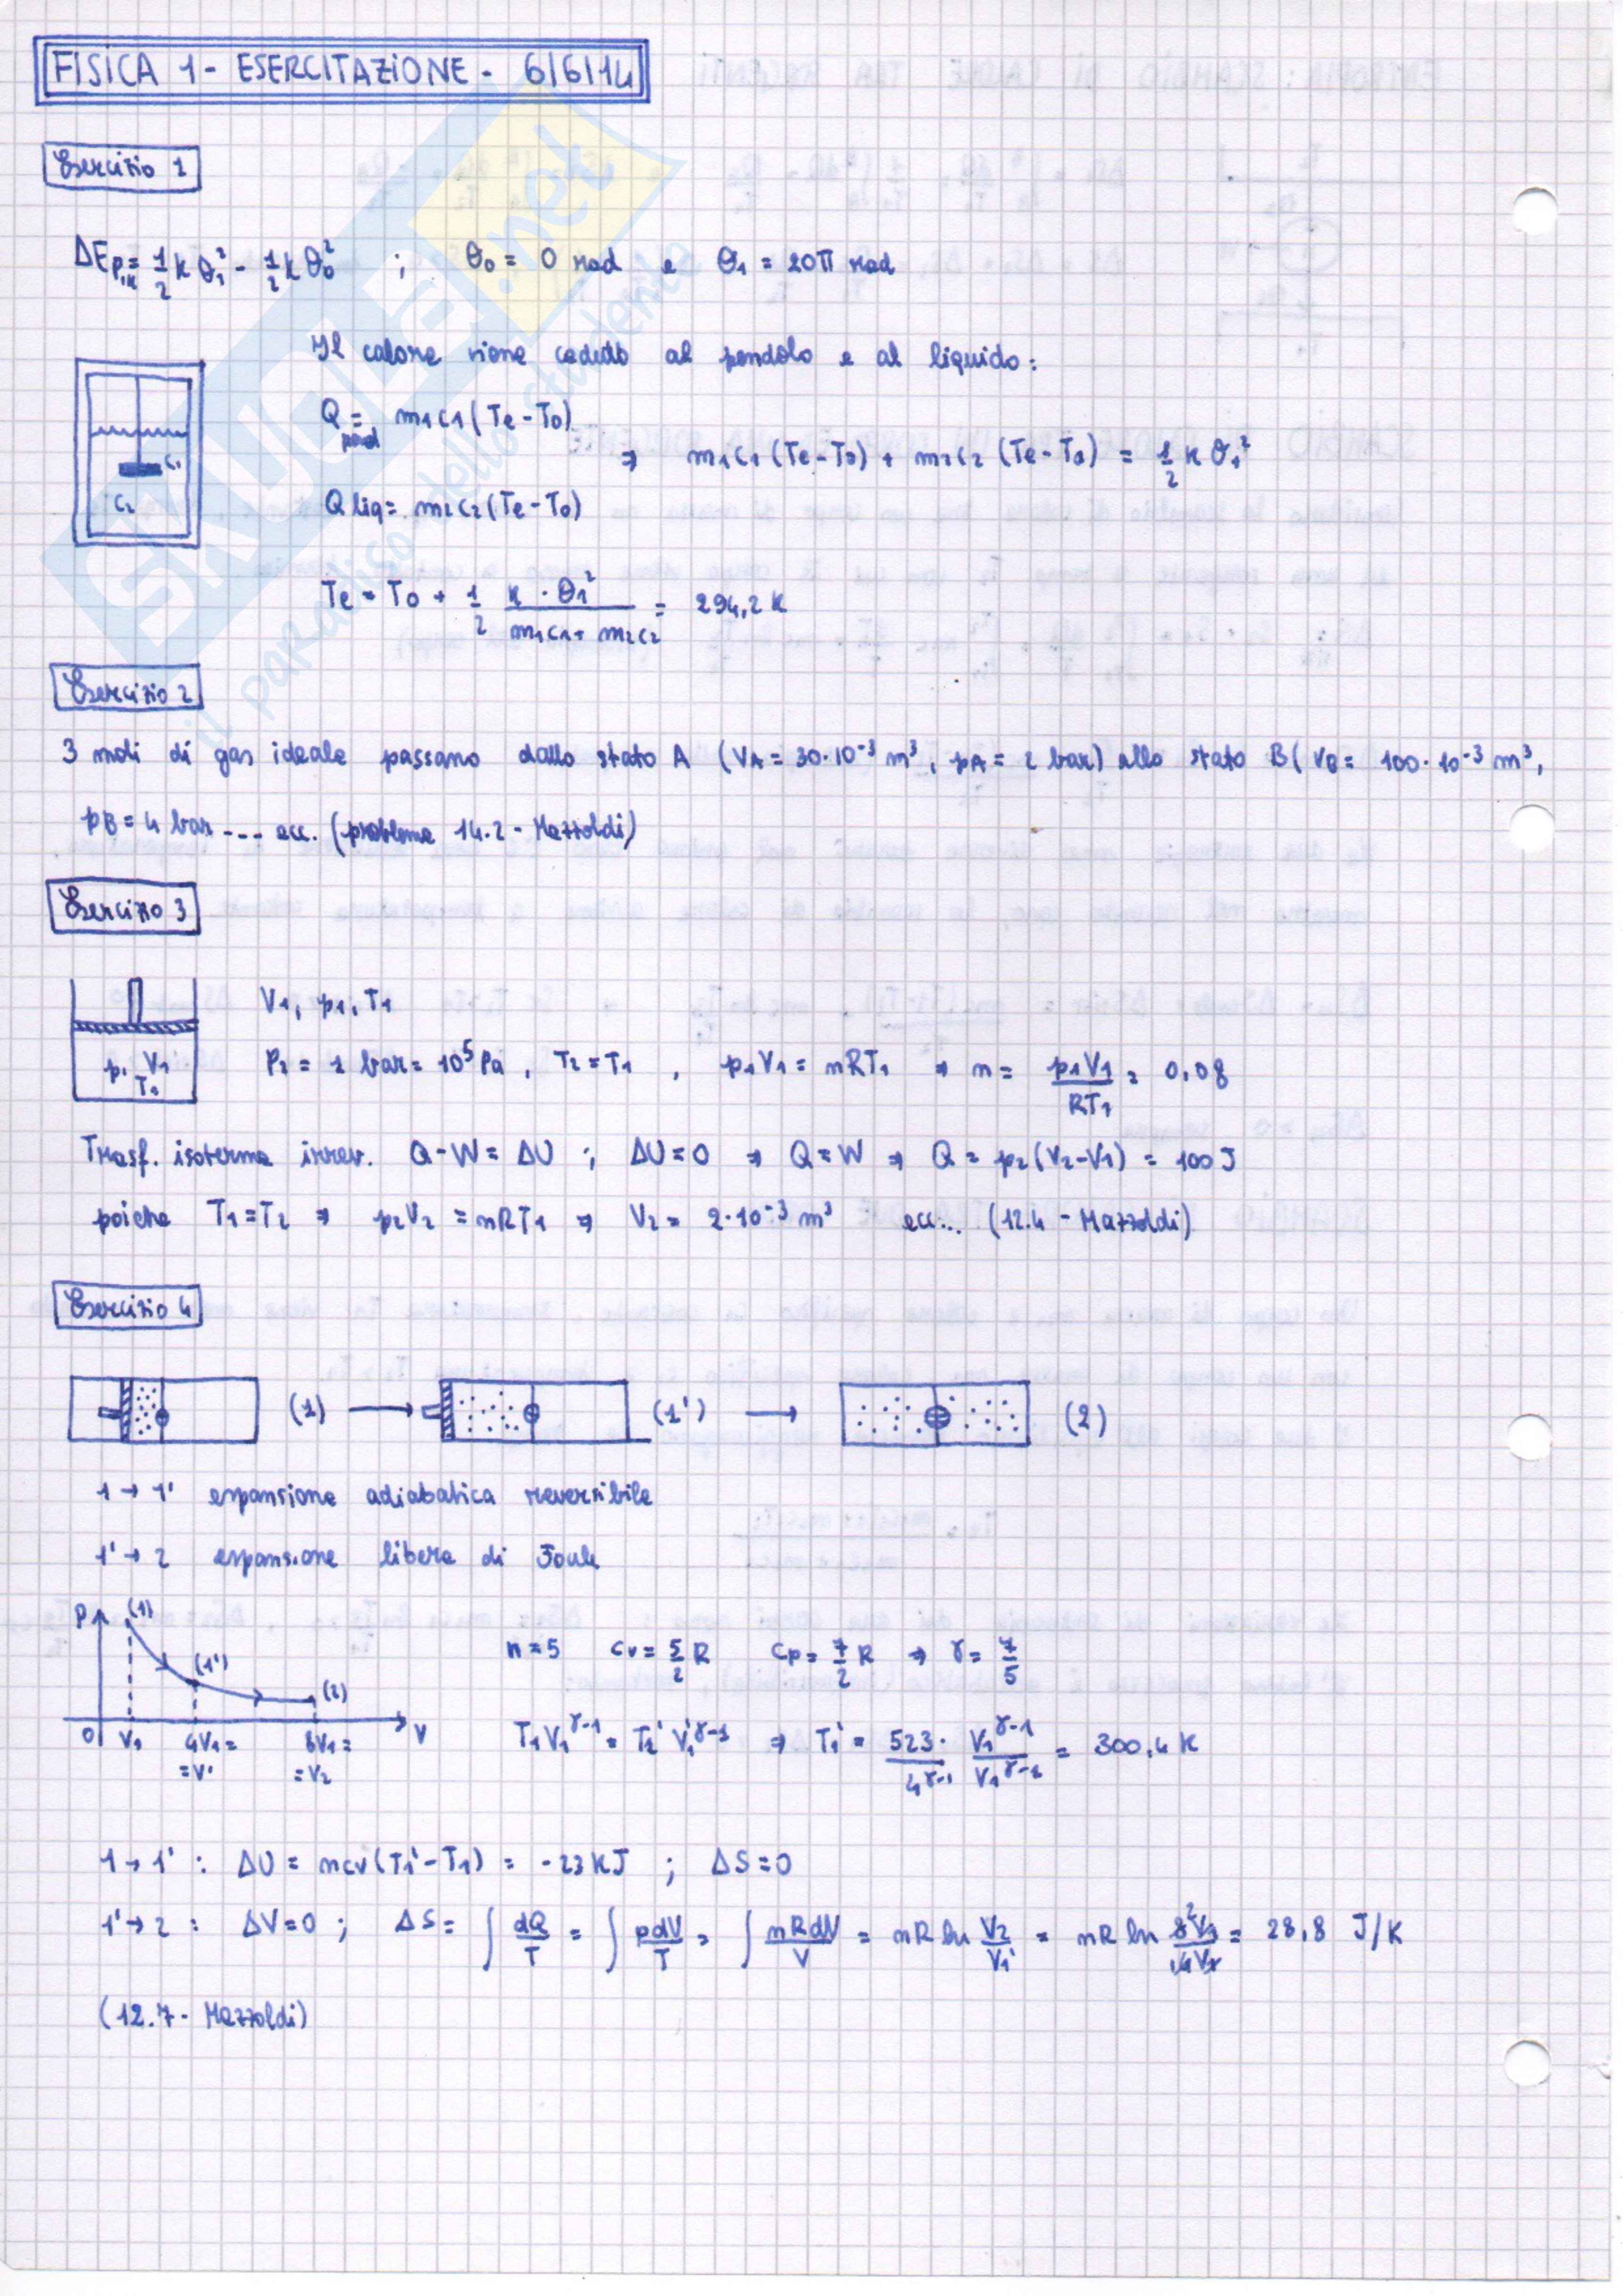 FISICA 1 - ESERCITAZIONE - 6/6/14
Esercizio 1
ΔEp,k = 1/2 k θ₁² - 1/2 k θ₀² ; θ₀ = 0 rad e θ₁ = 20π rad
Il calore viene ceduto al pendolo e al liquido:
Q pend = m₁c₁(Te - T₀)
⇒ m₁c₁(Te - T₀) + m₂c₂(Te - T₀) = 1/2 k θ₁²
Q liq = m₂c₂(Te - T₀)
c₁
c₂
Te = T₀ + 1/2 k · θ₁² / (m₁c₁ + m₂c₂) = 294,2 K
Esercizio 2
3 moli di gas ideale passano dallo stato A (VA = 30·10⁻³ m³, pA = 2 bar) allo stato B (VB = 100·10⁻³ m³,
pB = 4 bar --- ecc. (problema 14.2 - Mazzoldi)
Esercizio 3
V₁, p₁, T₁
p₁ V₁
T₁
P₂ = 1 bar = 10⁵ Pa, T₂ = T₁, p₁V₁ = nRT₁ ⇒ n = p₁V₁/RT₁ = 0,08
Trasf. isoterma irrev. Q - W = ΔU ; ΔU = 0 ⇒ Q = W ⇒ Q = p₂(V₂ - V₁) = 100 J
poiche T₁ = T₂ ⇒ p₂V₂ = nRT₁ ⇒ V₂ = 2·10⁻³ m³ ecc... (12.4 - Mazzoldi)
Esercizio 4
(1) → (1') → (2)
1 → 1' espansione adiabatica reversibile
1' → 2 espansione libera di Joule
P (1)
(1')
(2)
0 V₁ 4V₁ = 8V₁ = V
= V' = V₂
n = 5 cv = 5/2 R cp = 7/2 R ⇒ γ = 7/5
T₁V₁^γ-1 = T₂' V₁'^γ-1 ⇒ T₁' = 523 · / 4^γ-1 V₁^γ-1 / V₁^γ-1 = 300,4 K
1 → 1' : ΔU = ncv(T₁' - T₁) = -23 KJ ; ΔS = 0
1' → 2 : ΔV = 0 ; ΔS = ∫ dQ/T = ∫ pdV/T = ∫ nRdV/V = nR ln V₂/V₁' = nR ln 8²V₁/4V₁ = 28,8 J/K
(12.7 - Mazzoldi)
SKUOLA.net
il paradiso dello studente